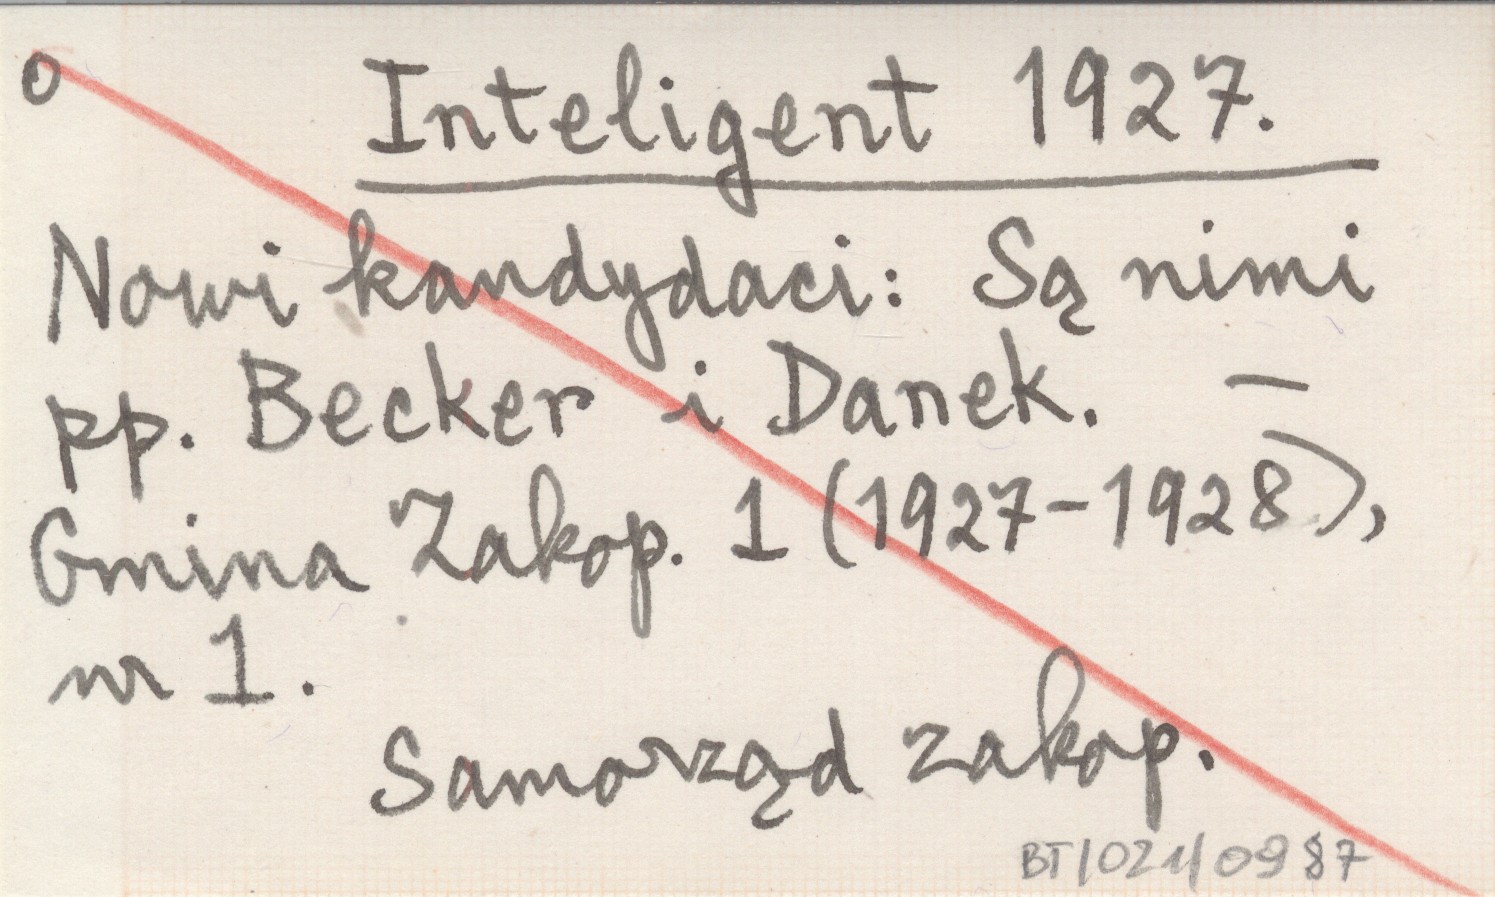 o Inteligent 1927.
Nowi kandydaci: Są nimi
pp. Becker i Danek. —
Gmina Zakop. 1 (1927-1928),
nr 1.
Samorząd zakop.
BT/021/0987